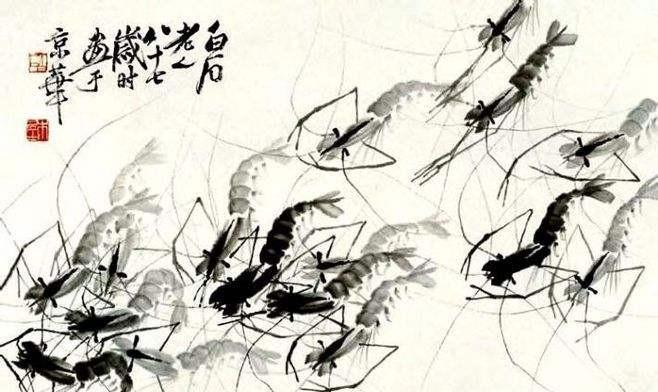 白石
老人
八十七
岁时
画于
京华